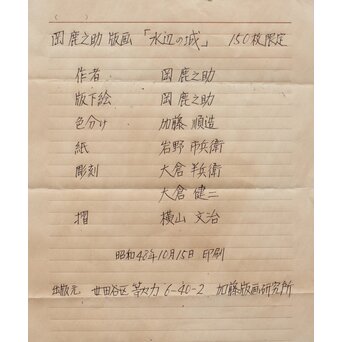 岡鹿之助 版画「水辺の城」 150枚限定
作者 岡 鹿之助
版下絵 岡 鹿之助
色分け 加藤 順造
紙 岩野 市兵衛
彫刻 大倉 半兵衛
大倉 健二
摺 横山 文治
昭和48年10月15日 印刷
出版元 世田谷区等々力6-40-2 加藤版画研究所